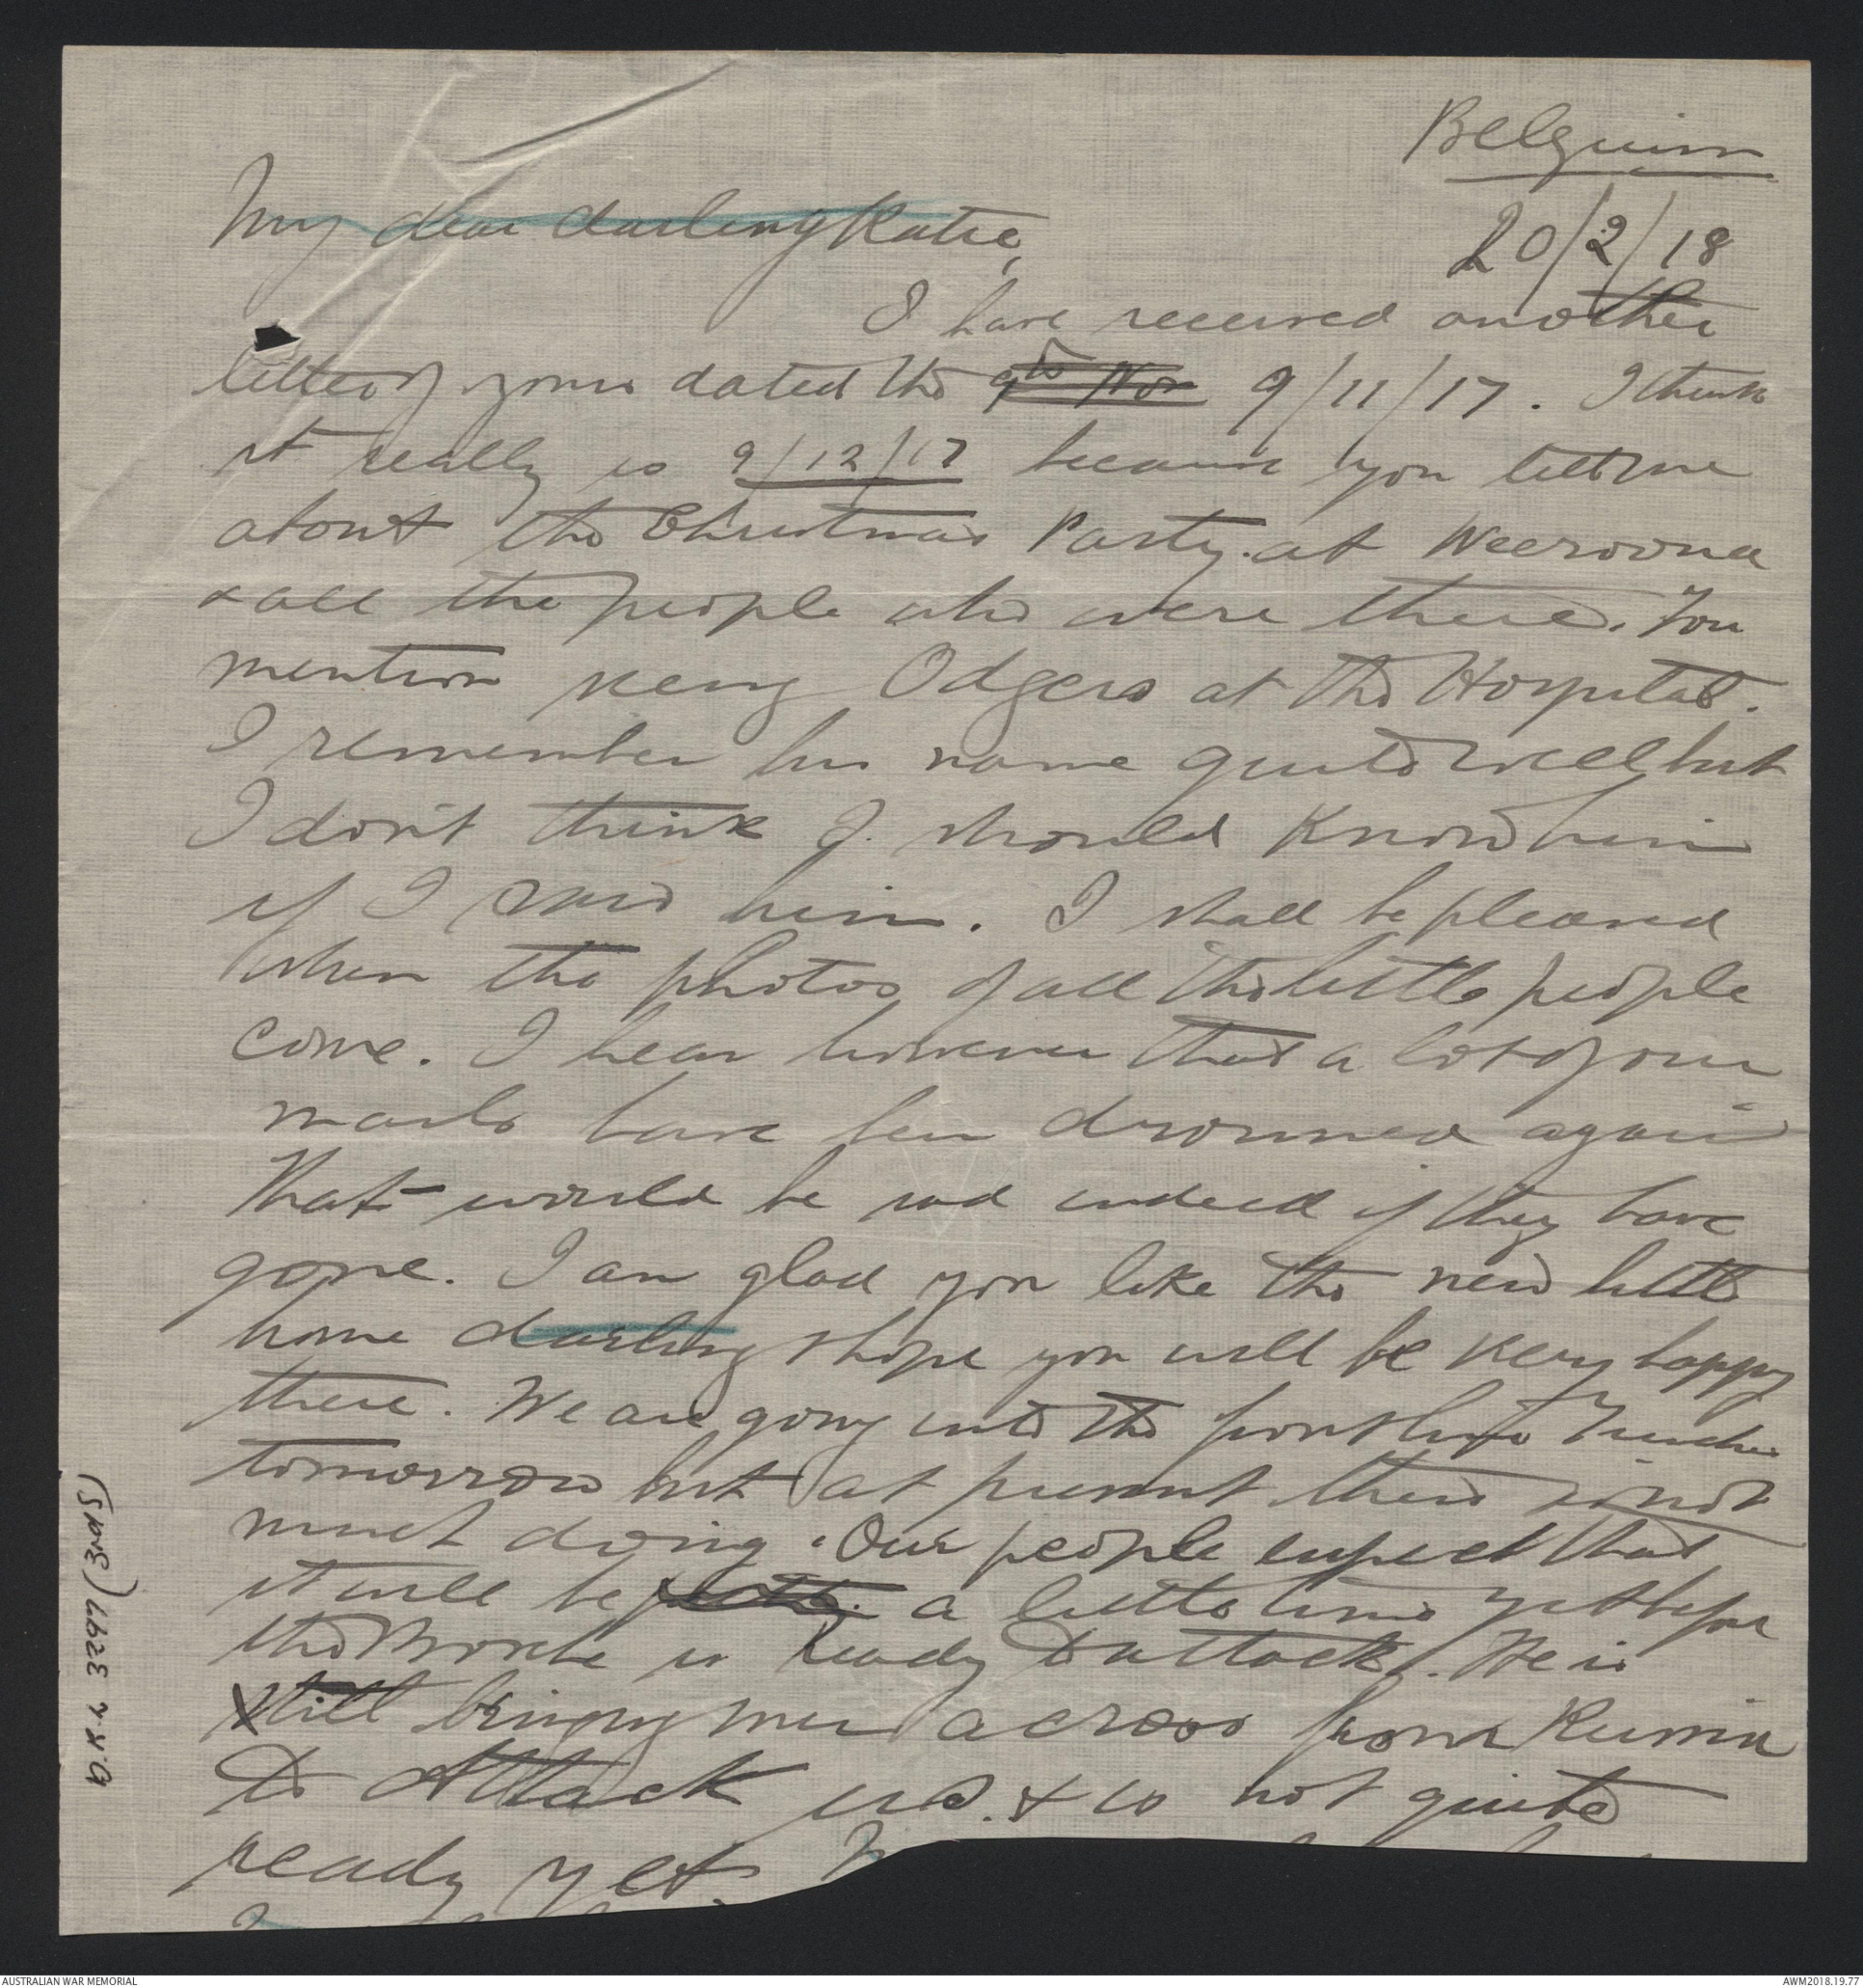 Belguim
20/2/18
My dear darling Katie,
I have received another
letter of yours dated the 9th Nov 9/11/17. I think
it really is 9/12/17 because you tell me
about the Christmas Party at Weeroona
& all the people who were there. You
mention Odgers at the Hospital.
I remember his name quite well but
I don't think I should know him
if I saw him. I shall be pleased
when the photos of all the little people
come. I hear however that a lot of our
mails have been drowned again
That would be sad indeed if they have
gone. I am glad you like the new little
home darling & hope you will be very happy
there. We are going into the front line Trenches
tomorrow but at present there is not
much doing. Our people expect that
it will be a little time yet before
the Boche is ready to attack. He is
still bringing men across from Russia
to Attack us. & is not quite
ready yet.
D.R.L 3297 (3 of 5)
AUSTRALIAN WAR MEMORIAL
AWM2018.19.77